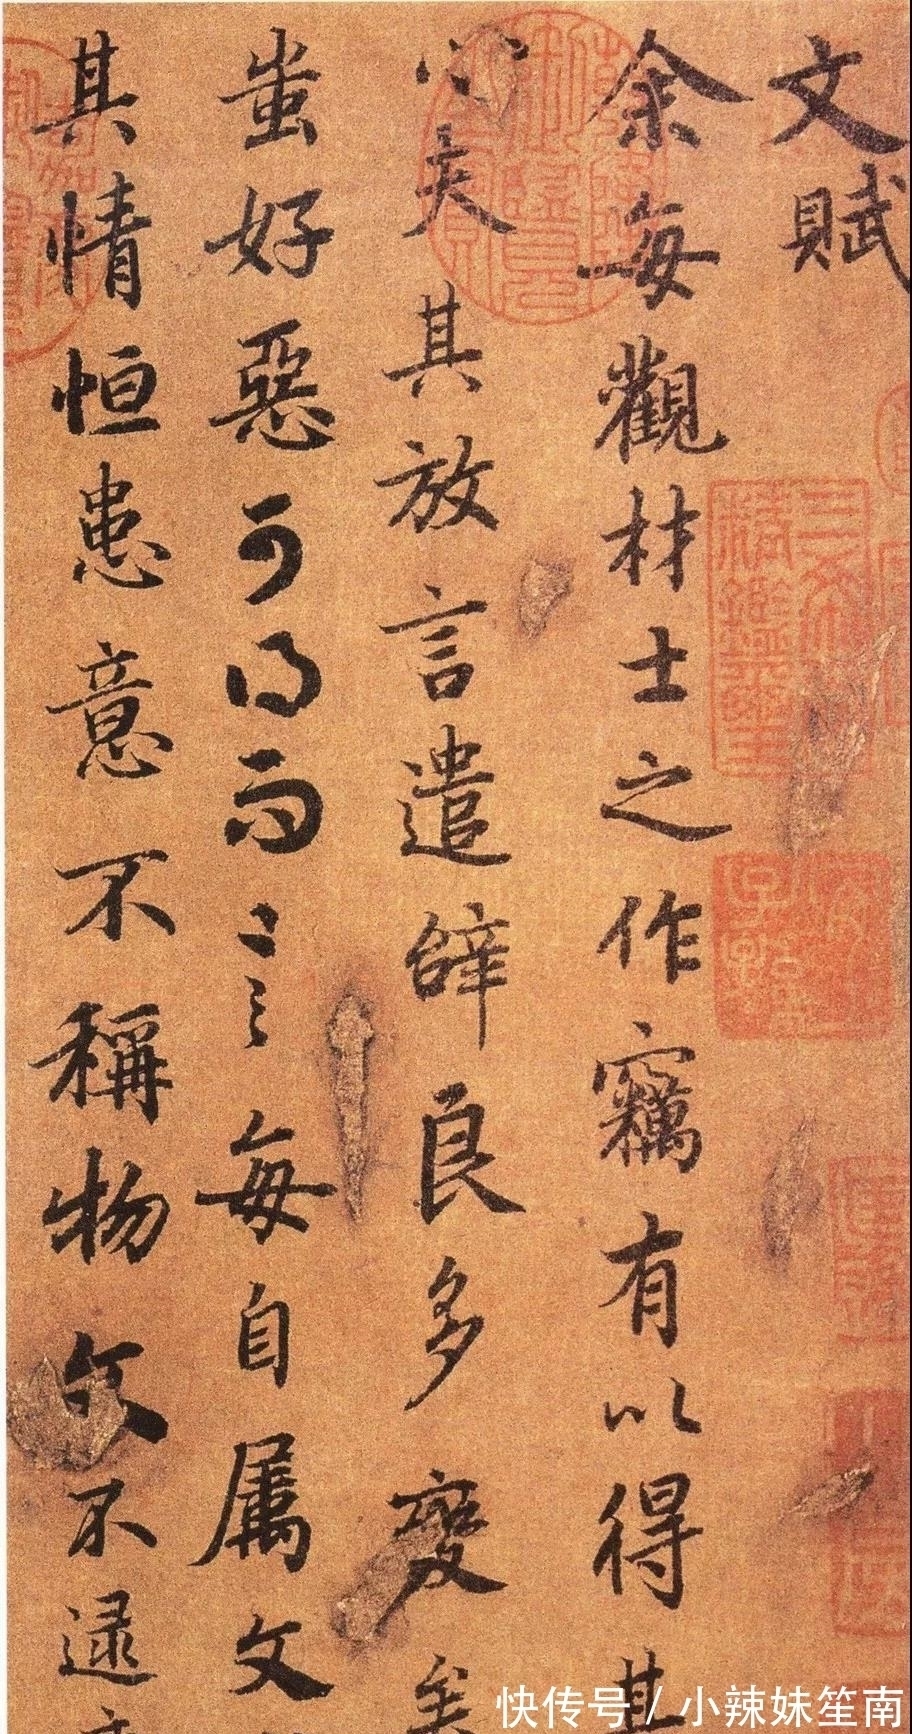 文賦
余每觀材士之作竊有以得其
心夫其放言遣辭良多變矣
蚩好惡可得而言每自屬文
其情恒患意不稱物文不逮
三希堂精鑑璽
宜子孫
快传号 / 小辣妹笙南